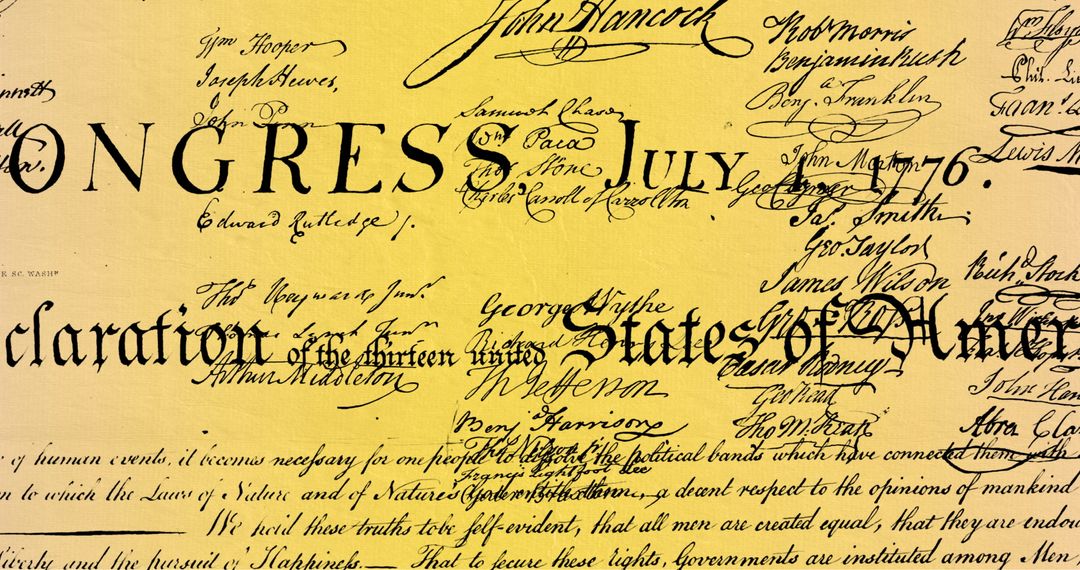 John Hancock
Wm Hooper
Joseph Hewes,
John Penn
Edward Rutledge /.
Thos Heyward Junr.
Arthur Middleton
Samuel Chase
Wm Paca
Thos Stone
Charles Carroll of Carrollton
George Wythe
Richard Henry Lee
Th Jefferson
Benj Harrison
Francis Lightfoot Lee
Robt Morris
Benjamin Rush
Benj. Franklin
John Morton
Geo Clymer
Jas. Smith
Geo. Taylor
James Wilson
Caesar Rodney
Geo Read
Tho M:Kean
Lewis M
Richd. Stock
Abra Cla
ONGRESS, JULY 4, 1776.
E SC. WASHN
claration of the thirteen united States of Amer
of human events, it becomes necessary for one people to dissolve the political bands which have connected them with
n to which the Laws of Nature and of Nature's a decent respect to the opinions of mankind
We hold these truths to be self-evident, that all men are created equal, that they are endow
Liberty and the pursuit of Happiness.— That to secure these rights, Governments are instituted among Men